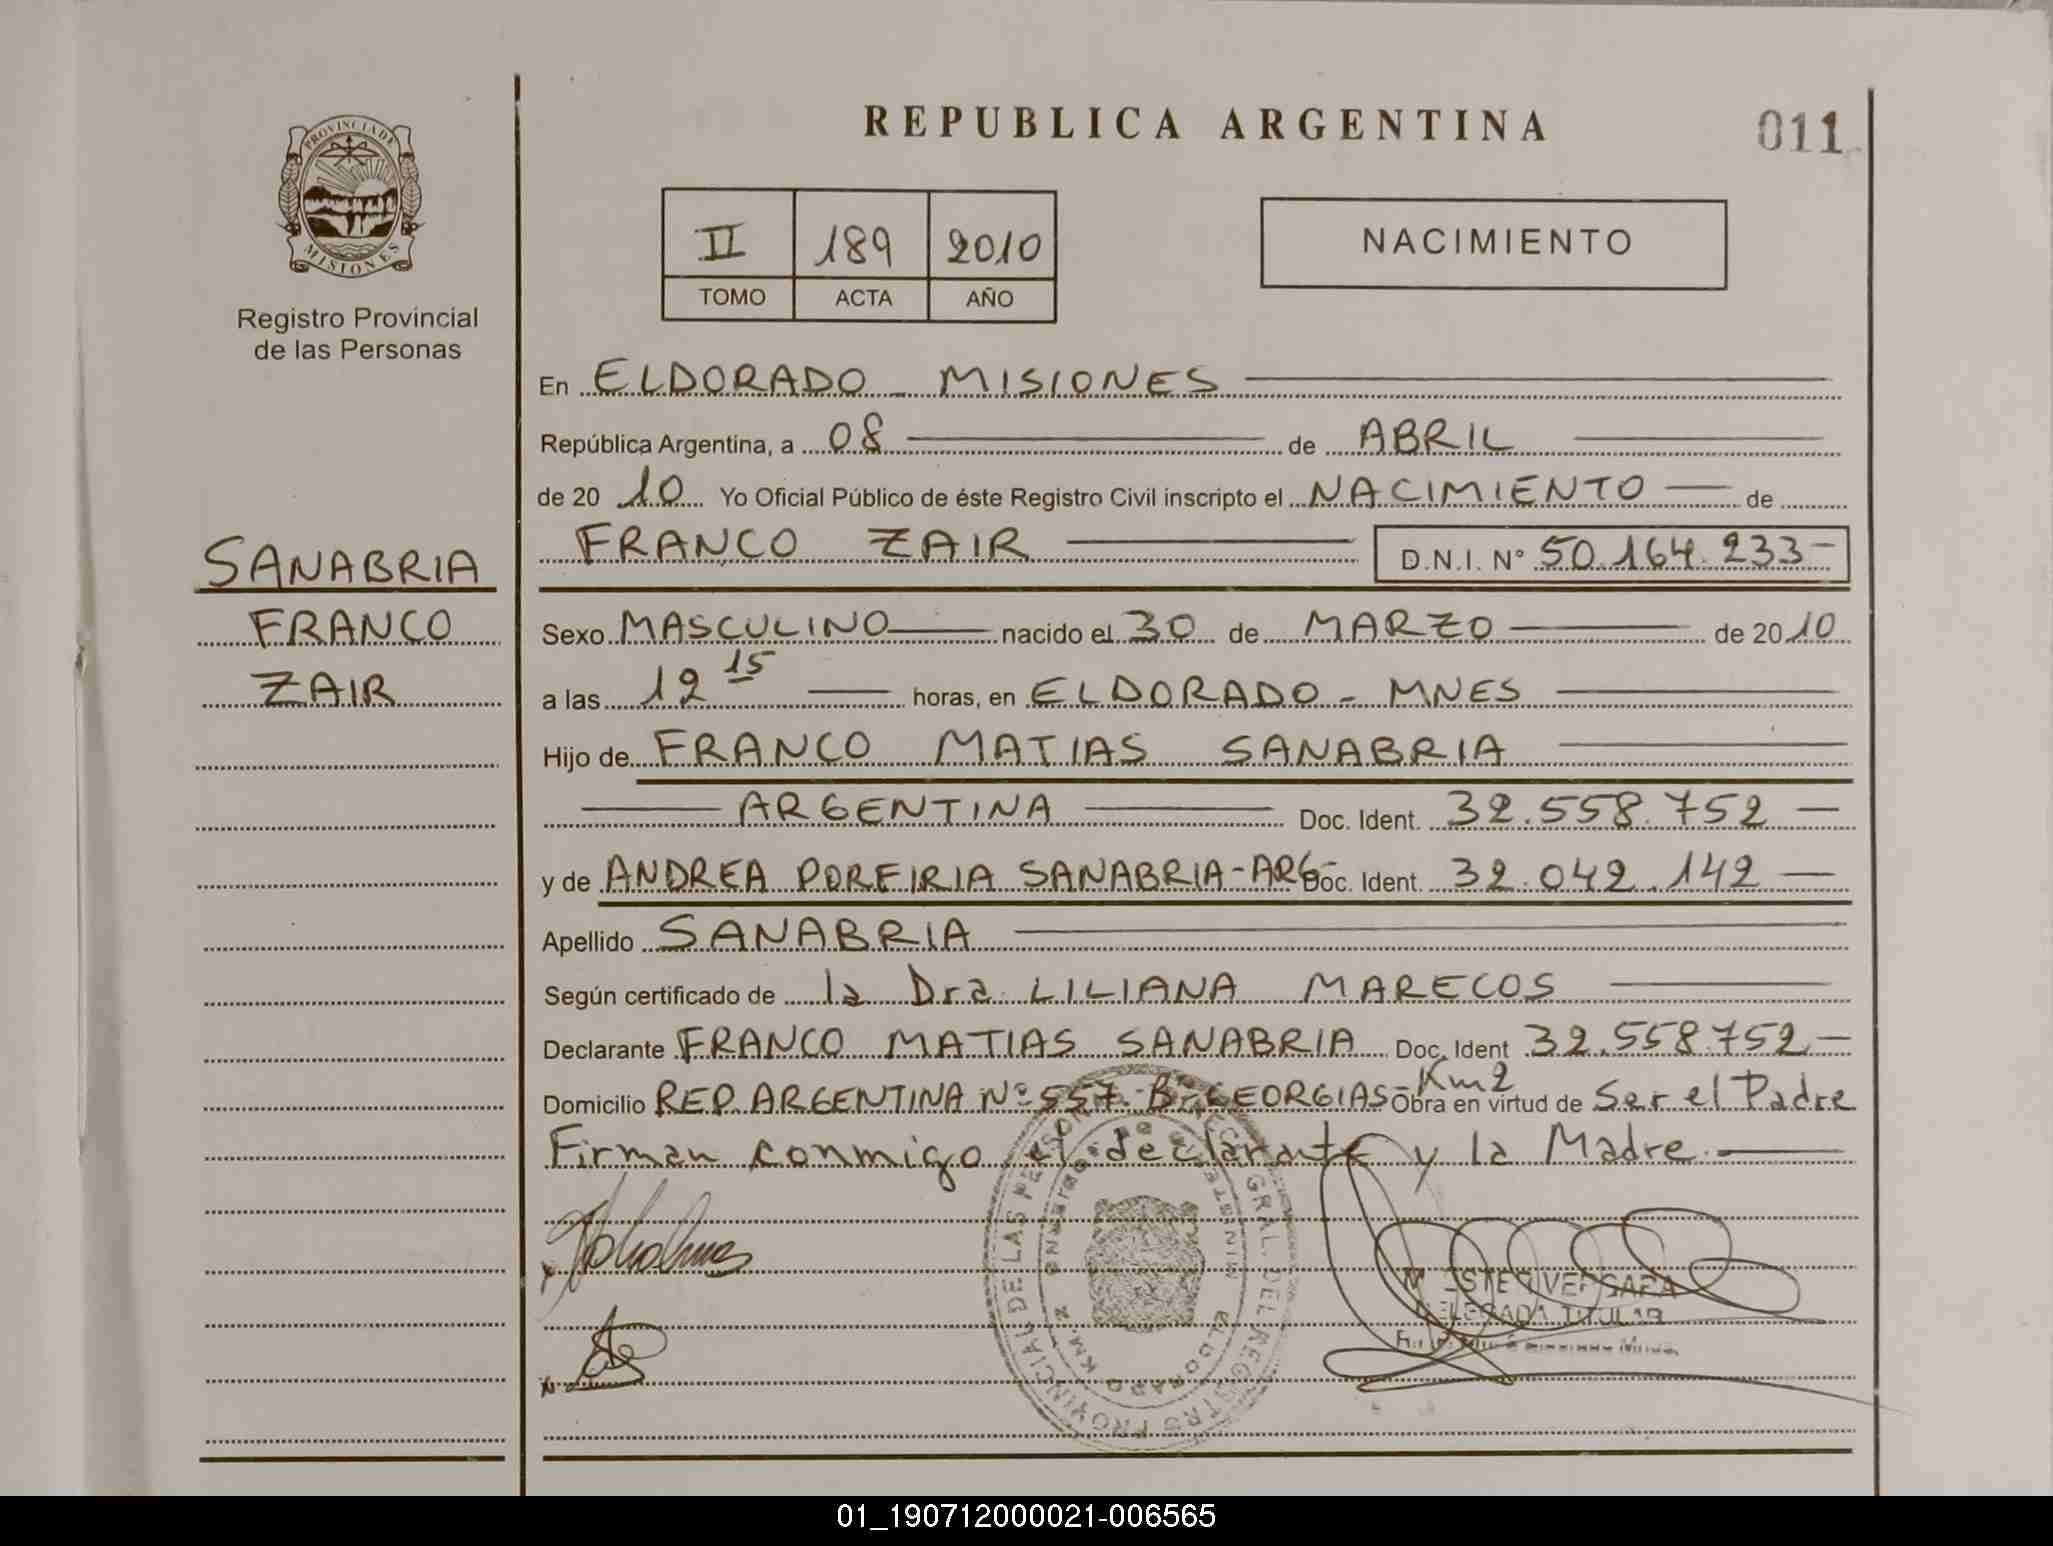 PROVINCIA DE
MISIONES
Registro Provincial
de las Personas
SANABRIA
FRANCO
ZAIR
REPUBLICA ARGENTINA
011
II 189 2010
TOMO ACTA AÑO
NACIMIENTO
En ELDORADO - MISIONES
República Argentina, a 08 de ABRIL
de 20 10 Yo Oficial Público de éste Registro Civil inscripto el NACIMIENTO de
FRANCO ZAIR D.N.I. N° 50.164.233-
Sexo MASCULINO nacido el 30 de MARZO de 2010
a las 12 15 horas, en ELDORADO - MNES
Hijo de FRANCO MATIAS SANABRIA
ARGENTINA Doc. Ident. 32.558.752
y de ANDREA PORFIRIA SANABRIA-ARG- Doc. Ident. 32.042.142
Apellido SANABRIA
Según certificado de la Dra. LILIANA MARECOS
Declarante FRANCO MATIAS SANABRIA Doc. Ident 32.558.752
Domicilio REP. ARGENTINA N° 557. B° GEORGIAS- Km2 Obra en virtud de Ser el Padre
Firman conmigo, el declarante y la Madre
REGISTRO PROVINCIAL DE LAS PERSONAS
ELDORADO KM. 2
DELEGADA TITULAR
01_190712000021-006565